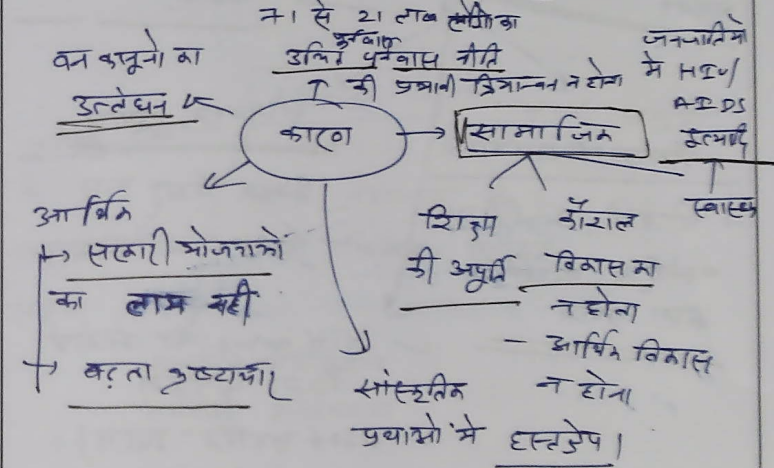 71 से 21 लाख लोगो का
पुर्नवास
उचित पुर्नवास नीति
की प्रभावी क्रियान्वन न होना
वन कानूनो का
उल्लंघन
जनजातियो
मे HIV/
AIDS
इत्यादि
स्वास्थ्य
कारण
सामाजिक
आर्थिक
सरकारी योजनाओं
का लाभ नही
बढ़ता भ्रष्टाचार
शिक्षा
की अपूर्ति
कौशल
विकास का
न होना
- आर्थिक विकास
न होना
सांस्कृतिक
प्रथाओ मे हस्तक्षेप।